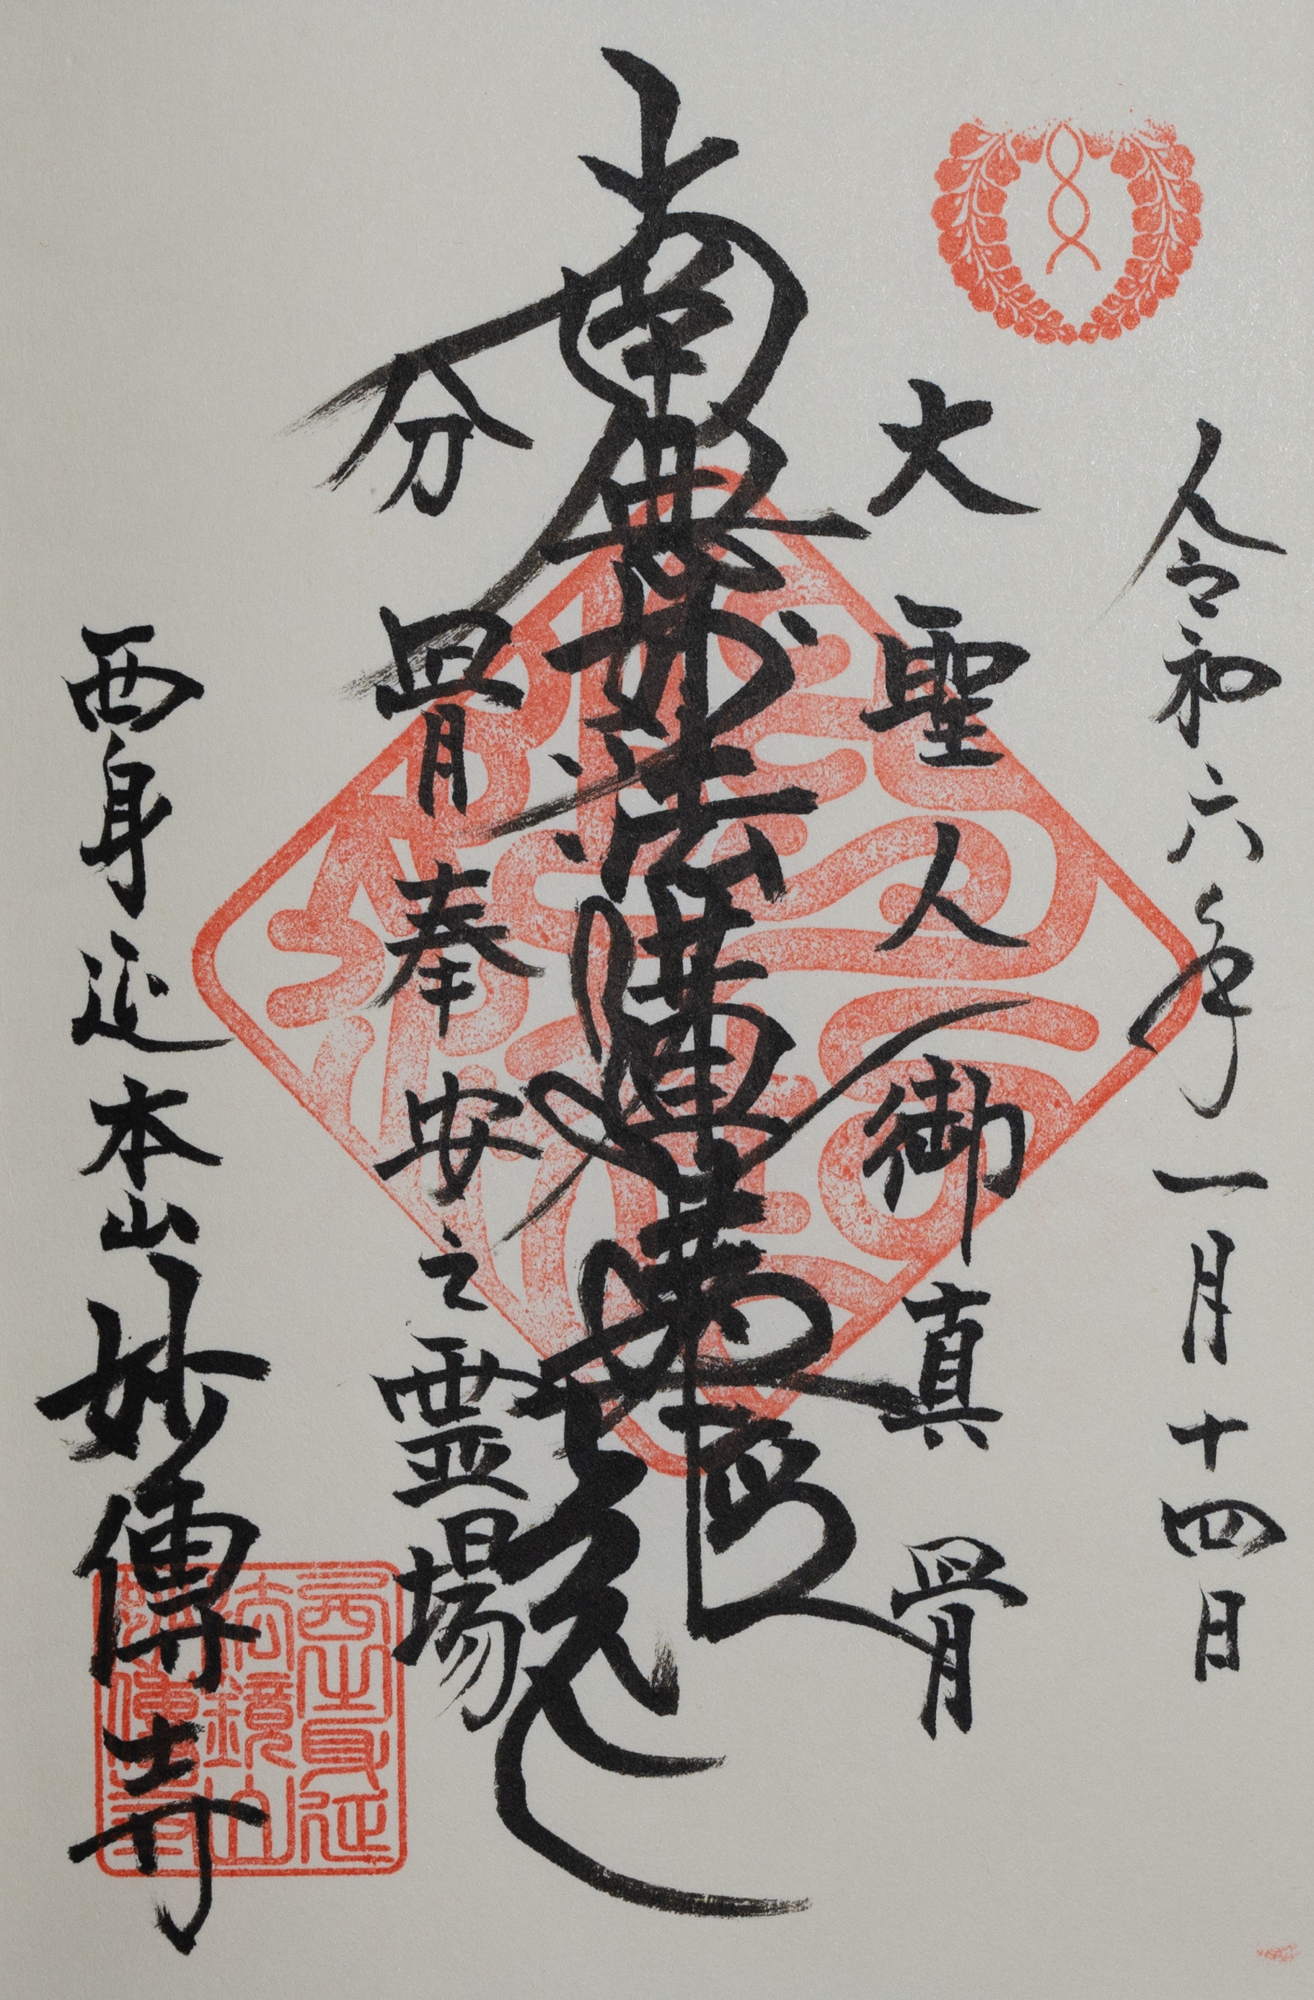 令和六年一月十四日
大聖人御真骨
南無妙法蓮華経
分骨奉安之霊場
西身延本山妙傳寺
西身延
法鏡山
妙傳寺